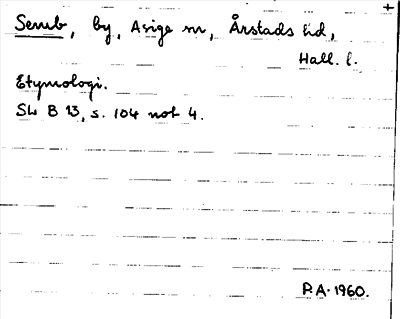 Semb, by, Asige sn, Årstads hd,
Hall. l.
Etymologi.
SL B 13, s. 104 not 4.
P.A. 1960.